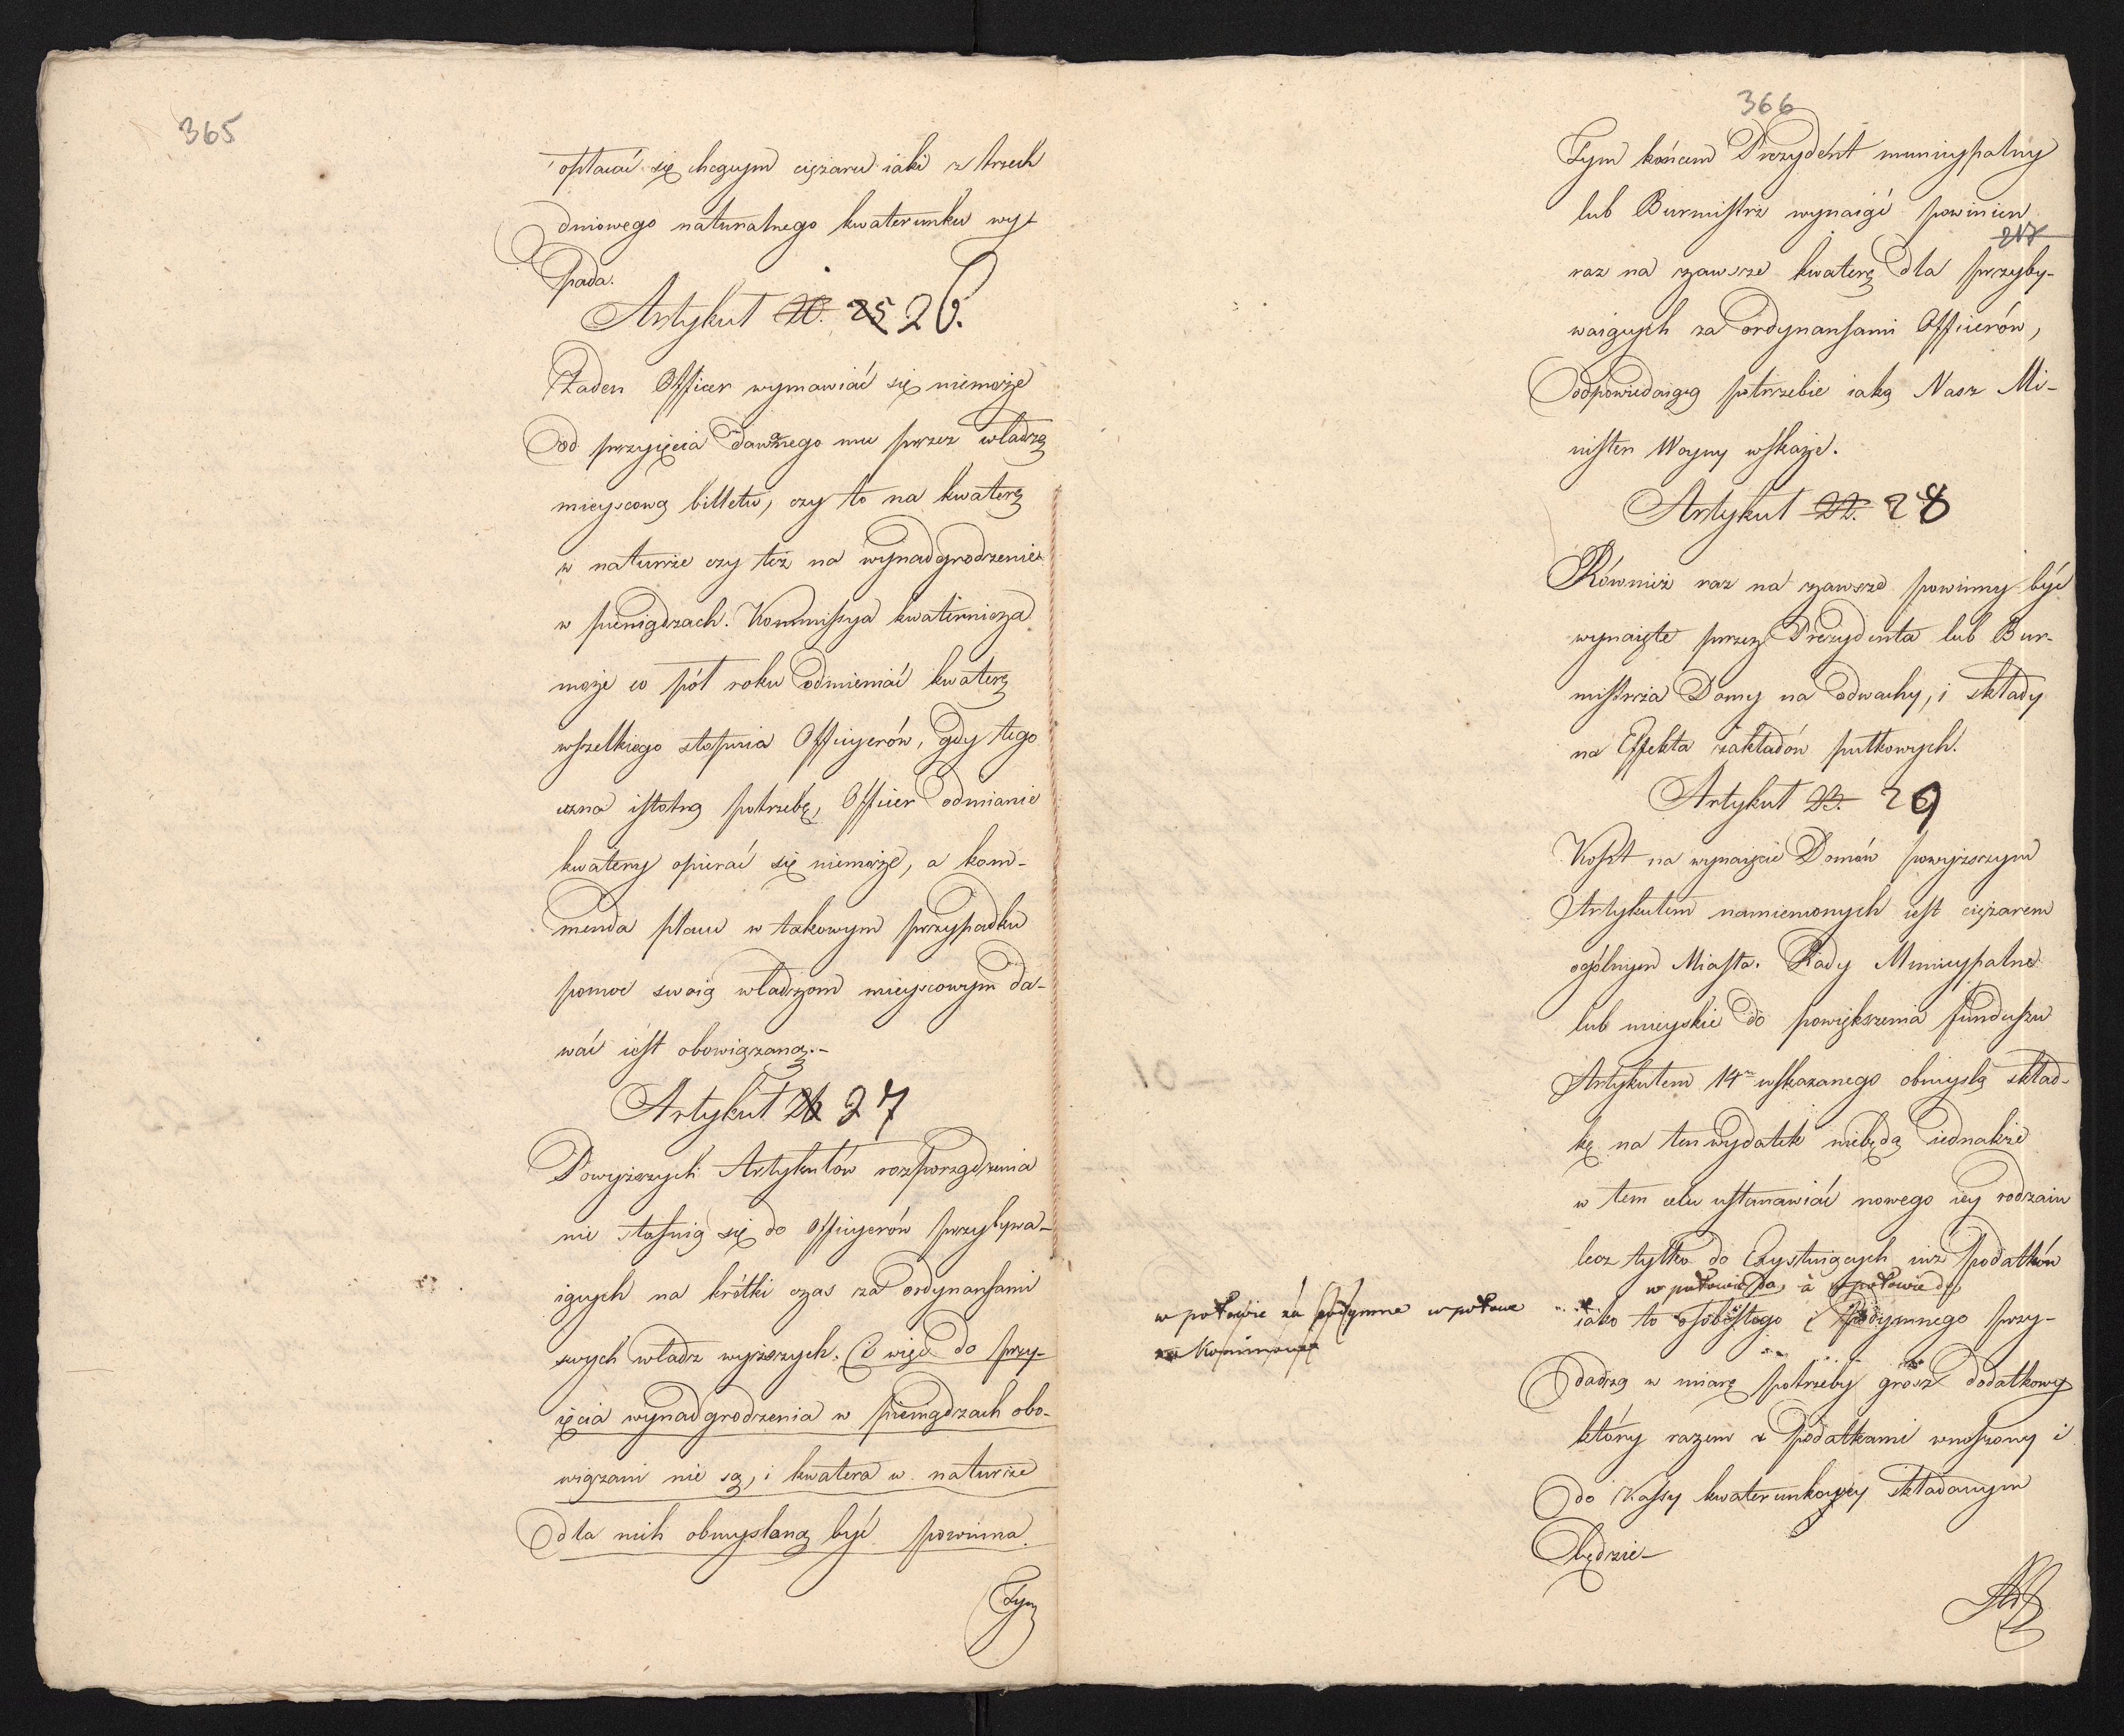 365
opłacać się chcącym ciężaru iaki z trzech
dniowego naturalnego kwaterunku wy-
pada.
Artykuł 20. 25 26.
Żaden Officer wymawiać się niemoże
od przyięcia dawanego mu przez władzę
mieyscową billetu, czy to na kwaterę
w naturze czy też na wynadgrodzenie
w pieniądzach. Kommissya kwaternicza
może co pół roku odmieniać kwaterę
wszelkiego stopnia Officyerów, gdy tego
uzna istotną potrzebę, Officer odmianie
kwatery opierać się niemoże, a kom-
menda placu w takowym przypadku
pomoc swoią władzom mieyscowym da-
wać iest obowiązaną.-
Artykuł 26 27
Powyższych Artykułów rozporządzenia
nie stosuią się do Officyerów przybywa-
iących na krótki czas za ordynansami
swych władz wyższych. Ci więc do przy-
ięcia wynadgrodzenia w pieniądzach obo-
wiązani nie są, i kwatera w naturze
dla nich obmyślaną być powinna.
Tym
366
Tym końcem Prezydent municypalny
lub Burmistrz wynaiąć powinien
217
raz na zawsze kwaterę dla przyby-
waiących za ordynansami Officerów,
odpowiedaiącą potrzebie iaką Nasz Mi-
nister Woyny wskaże.
Artykuł 22. 28
Również raz na zawsze powinny być
wynaięte przez Prezydenta lub Bur-
mistrza Domy na odwachy, i składy
na Effekta zakładów pułkowych.
Artykuł 23. 29
Koszt na wynaięcie Domów powyższym
Artykułem namienionych iest ciężarem
ogólnym Miasta. Rady Municypalne
lub mieyskie do powiększenia funduszu
Artykułem 14m wskazanego obmyślą skład-
kę na ten wydatek niebędą iednakże
w tem celu ustanawiać nowego iey rodzaiu
lecz tylko do Exystuiących iuż podatków
w połowie do, a w połowie do
iako to osobistego i podymnego przy-
w połowie za podymne w połowe
za Kominowe
dadzą w miarę potrzeby grosz dodatkowy
który razem z podatkami wnoszony i
do Kassy kwaterunkowey składanym
będzie-